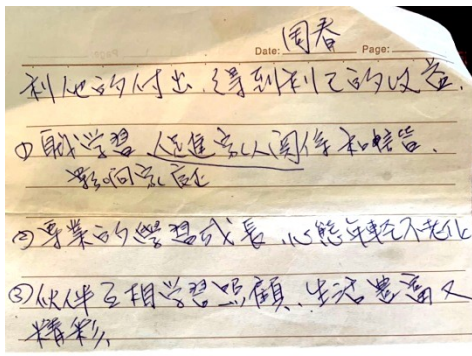 Date: 周春 Page:
利他的付出,得到利己的收益.
①自我学習 促進家人関係和諧.
影响家庭
②專業的學習成長,心態年軽不老化
③伙伴互相学習照顧,生活豊富又
精彩.